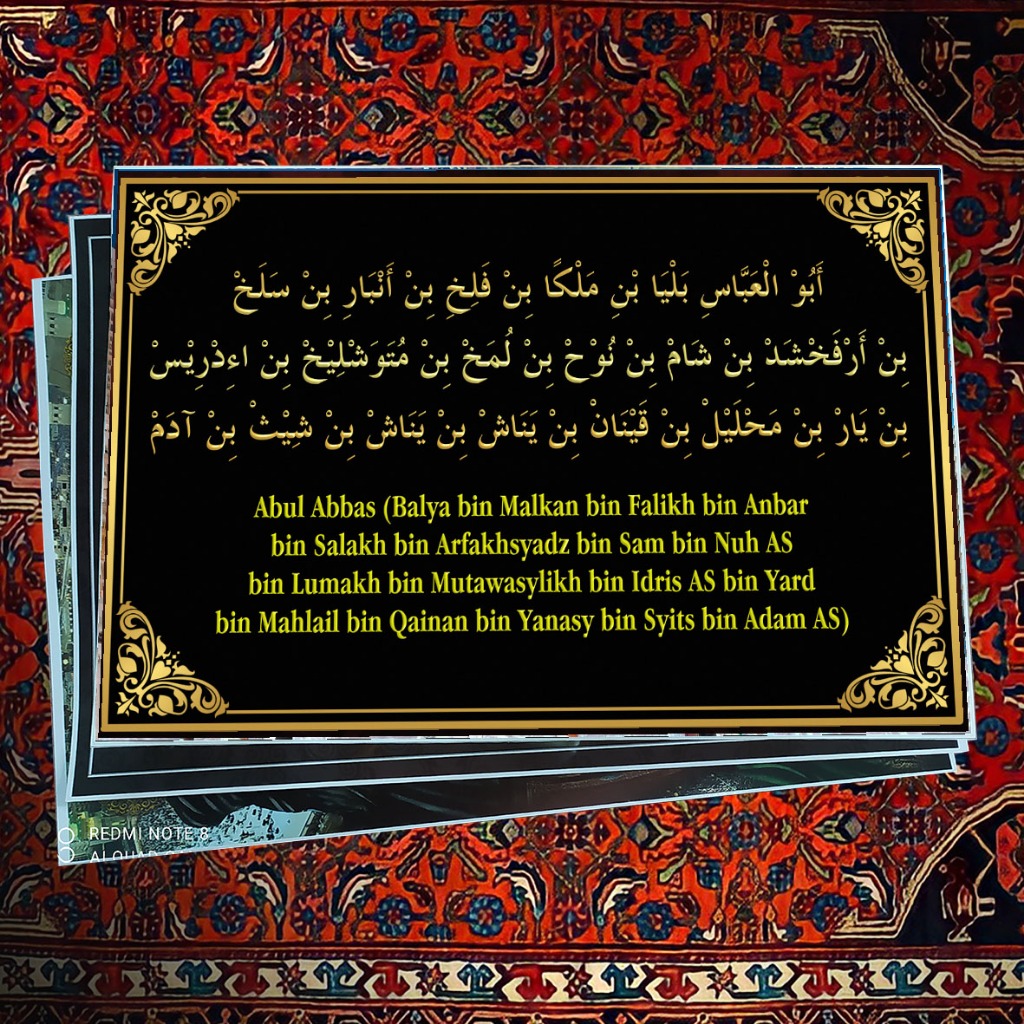 أَبُوْ الْعَبَّاسِ بَلْيَا بْنِ مَلْكًا بِنْ فَلِخِ بِنْ أَنْبَارِ بِنْ سَلَخْ
بِنْ أَرْفَخْشَدْ بِنْ شَامْ بِنْ نُوْحْ بِنْ لُمَخْ بِنْ مُتَوَشْلِيْخْ بِنْ اءِدْرِيْسْ
بِنْ يَارْ بِنْ مَحْلَيْلْ بِنْ قَيْنَانْ بِنْ يَنَاشْ بِنْ يَنَاشْ بِنْ شِيْثْ بِنْ آدَمْ
Abul Abbas (Balya bin Malkan bin Falikh bin Anbar
bin Salakh bin Arfakhsyadz bin Sam bin Nuh AS
bin Lumakh bin Mutawasylikh bin Idris AS bin Yard
bin Mahlail bin Qainan bin Yanasy bin Syits bin Adam AS)
REDMI NOTE 8